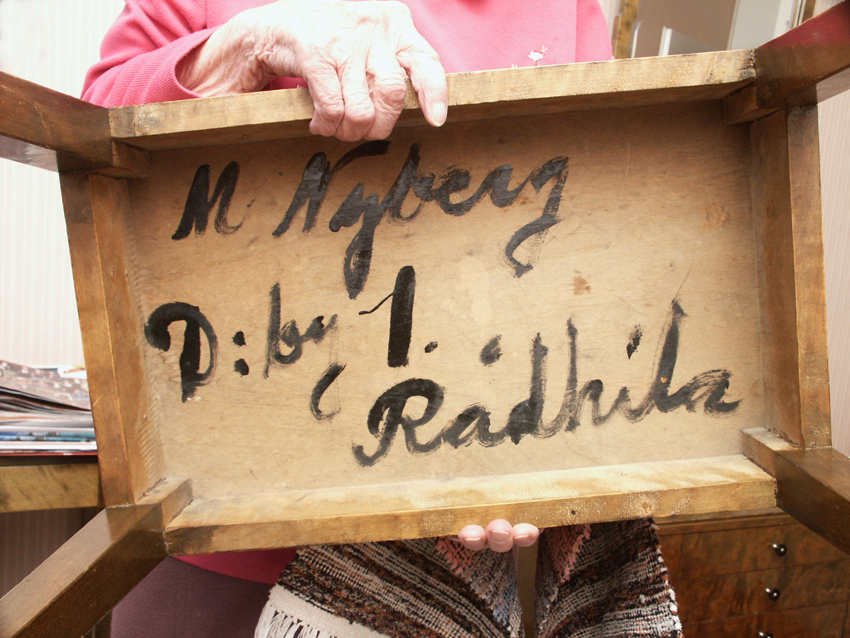 M Nyberg
D:by 1.
Rådhila